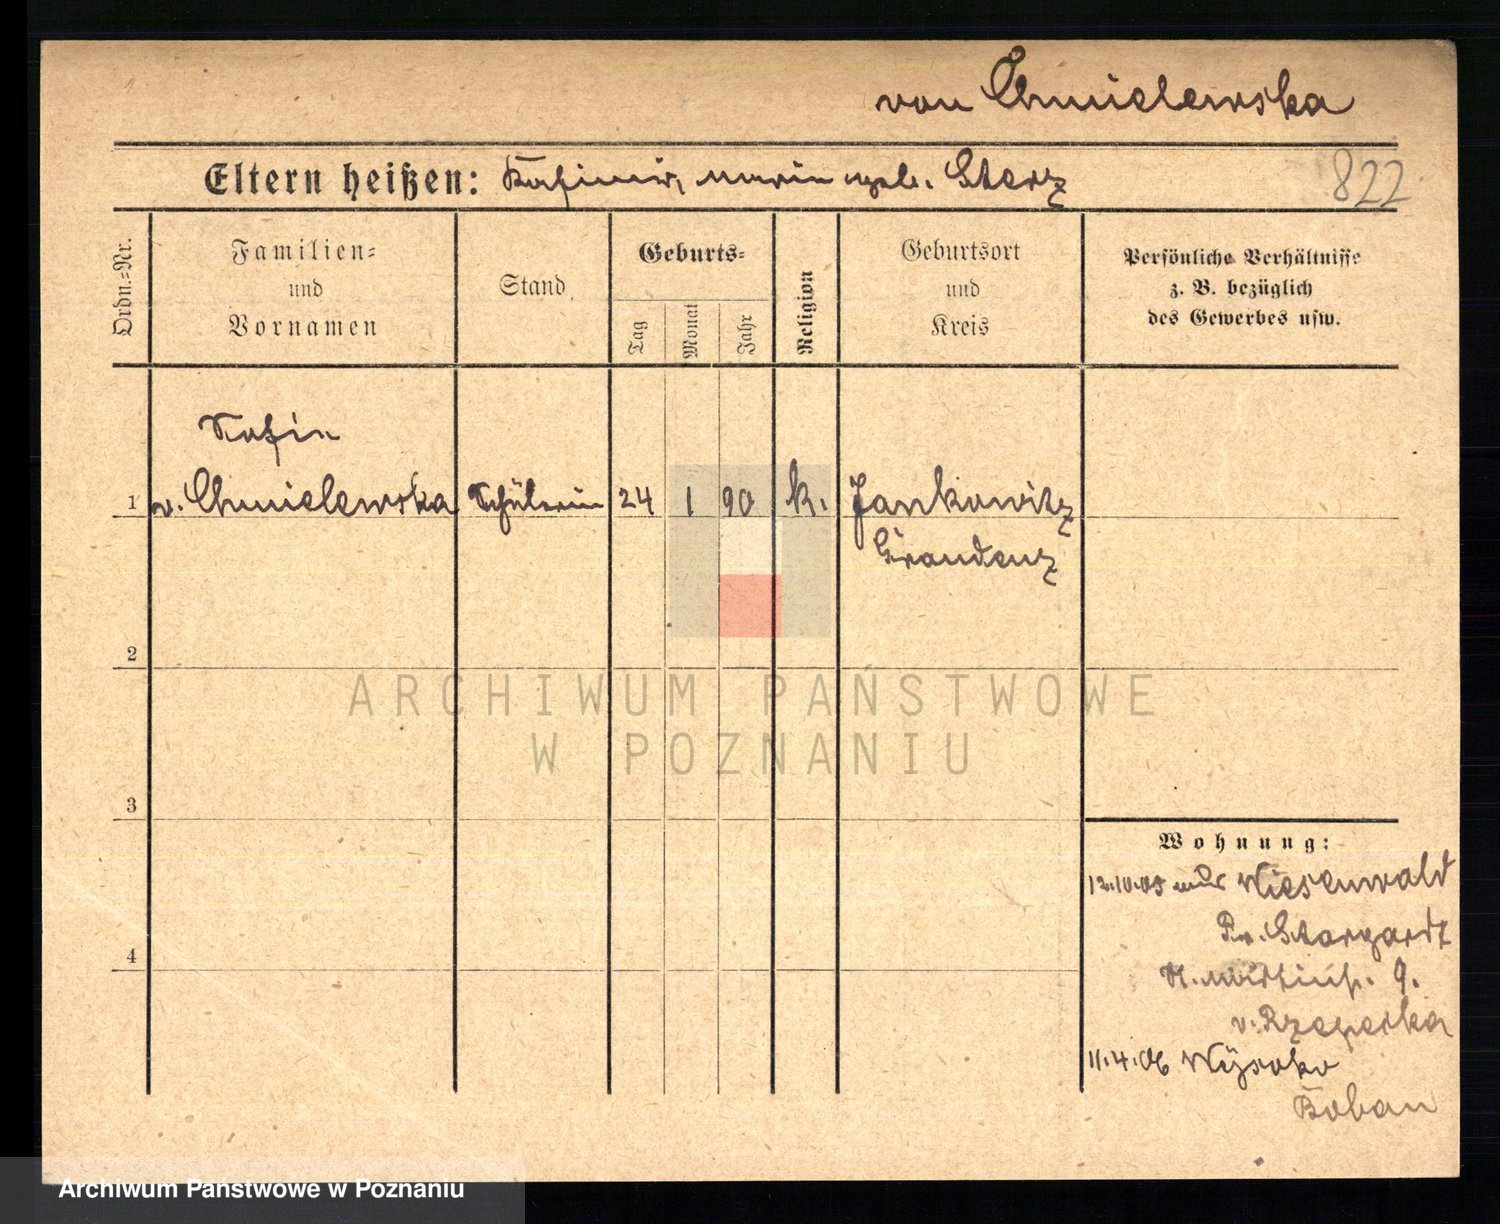 von Chmielewska
Eltern heißen: Kasimir, Maria geb. Starz
822
Ordn.-Nr.
Familien-
und
Vornamen
Stand
Geburts-
Tag
Monat
Jahr
Religion
Geburtsort
und
Kreis
Persönliche Verhältnisse
z. B. bezüglich
des Gewerbes usw.
Sofie
1 v. Chmielewska Schülerin 24 1 90 k. Jankowitz
Graudenz
2
ARCHIWUM PAŃSTWOWE
W POZNANIU
3
Wohnung:
12.10.05 aus Wiesenwald
Pr. Stargardt
St. Martinstr. 9.
v. Rzepecka
4
11.4.06 Wysoka
Archiwum Państwowe w Poznaniu